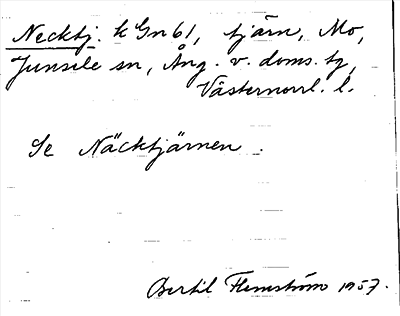 Necktj. k Gn 61, tjärn, Mo,
Junsele sn, Ång. v. doms. tg,
Västernorrl. l.
Se Näcktjärnen.
Bertil Flemström 1957.